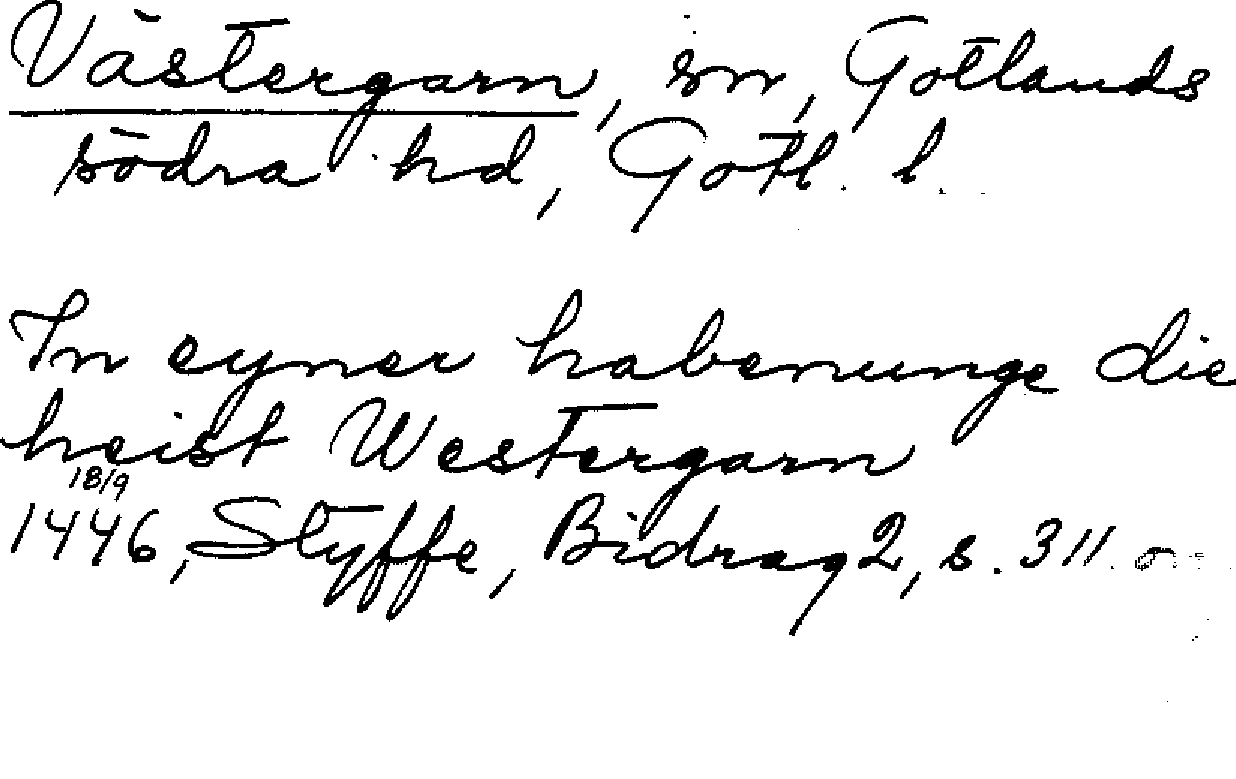 Västergarn, sn, Gotlands
södra hd, Gotl. l.
In eyner habenunge die
heist Westergarn
18/9
1446, Styffe, Bidrag 2, s. 311.